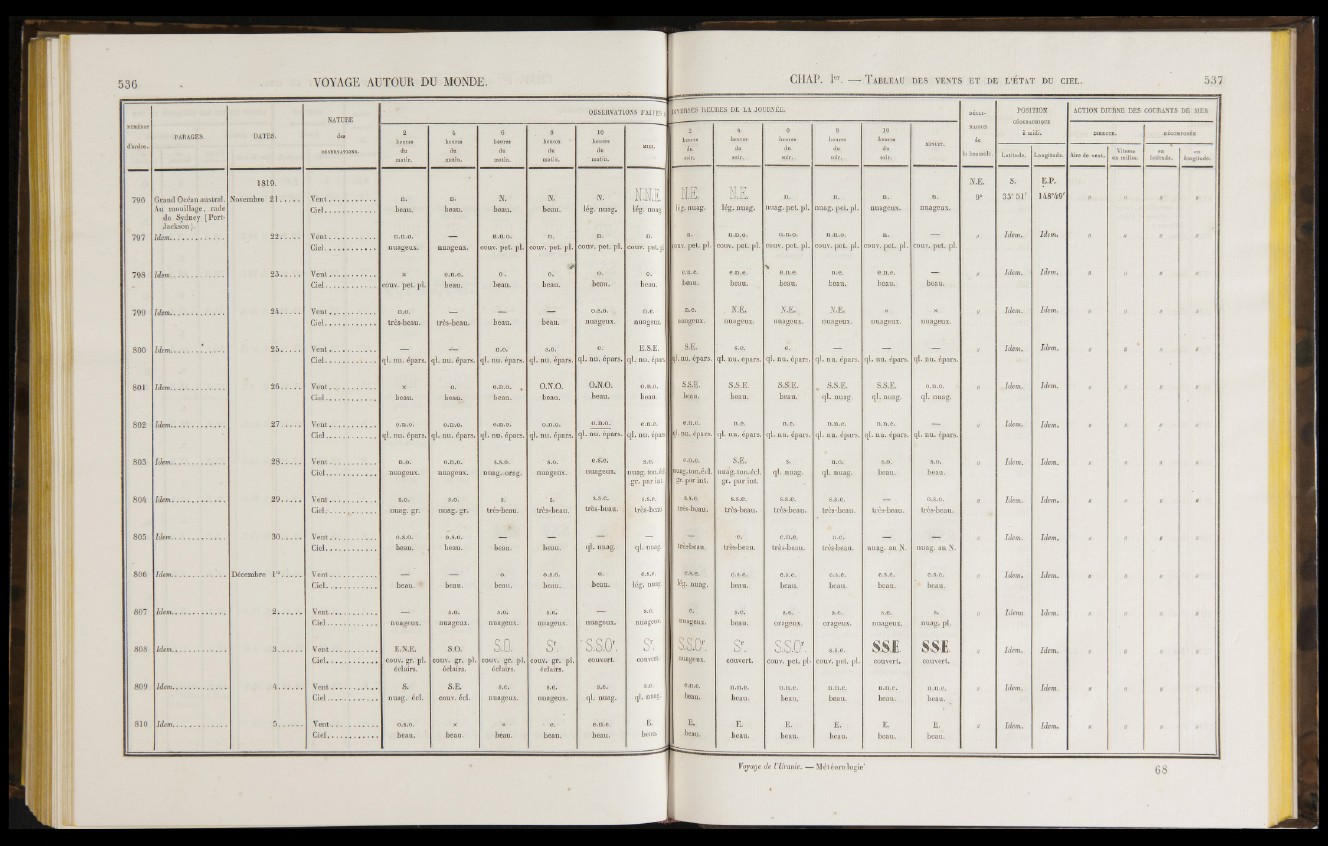 536 VOYAGE AUTOUR DU MONDE.
NUMÉROS d'ordre. PARAGES. DATES. NATURE des OBSERVATIONS. OBSERVATIONS FAITES
2 heures du matin. 4 heures du matin. 6 heures du matin. 8 heures du matin. 10 heures du matin. MIDI.
1819.
796 Grand Océan austral. Novembre 21..... Vent........... n. n. N. N. N. N.N.E.
Au mouillage, rade Ciel............ beau. beau. beau. beau. lég. nuag. lég. nuag.
de Sydney (Port-
Jackson).
797 Idem............. 22..... Vent........... n.n.o. — n.n.o. n. n. n.
Ciel............ nuageux. nuageux. couv. pet. pl. couv. pet. pl. couv. pet. pl. couv. pet. pl.
798 Idem............. 23..... Vent........... × e.n.e. o. o. o. o.
Ciel............ couv. pet. pl. beau. beau. beau. beau. beau.
799 Idem............. 24..... Vent........... n.o. — — — o.s.o. n.e.
Ciel............ très-beau. très-beau. beau. beau. nuageux. nuageux.
800 Idem............. 25..... Vent........... — — n.o. s.o. e. E.S.E.
Ciel............ ql. nu. épars. ql. nu. épars. ql. nu. épars. ql. nu. épars. ql. nu. épars. ql. nu. épars.
801 Idem............. 26..... Vent........... × o. o.n.o. O.N.O. O.N.O. o.n.o.
Ciel............ beau. beau. beau. beau. beau. beau.
802 Idem............. 27..... Vent........... o.n.o. o.n.o. o.n.o. o.n.o. n.n.o. e.n.e.
Ciel............ ql. nu. épars. ql. nu. épars. ql. nu. épars. ql. nu. épars. ql. nu. épars. ql. nu. épars.
803 Idem............. 28..... Vent........... n.o. o.n.o. s.s.o. s.o. o.s.o. s.o.
Ciel............ nuageux. nuageux. nuag. orag. nuageux. nuageux. nuag. ton. écl.
gr. par int.
804 Idem............. 29..... Vent........... s.o. s.o. s. s. s.s.e. s.s.e.
Ciel............ nuag. gr. nuag. gr. très-beau. très-beau. très-beau. très-beau.
805 Idem............. 30..... Vent........... o.s.o. o.s.o. — — — —
Ciel............ beau. beau. beau. beau. ql. nuag. ql. nuag.
806 Idem............. Décembre 1er..... Vent........... — — o. o.s.o. o. e.s.e.
Ciel............ beau. beau. beau. beau. beau. lég. nuag.
807 Idem............. 2...... Vent........... — s.o. s.o. s.o. — s.o.
Ciel............ nuageux. nuageux. nuageux. nuageux. nuageux. nuageux.
808 Idem............. 3...... Vent........... E.N.E. S.O. S.O. Sr. S.S.Or. Sr.
Ciel............ couv. gr. pl. couv. gr. pl. couv. gr. pl. couv. gr. pl. couvert. couvert.
éclairs. éclairs. éclairs. éclairs.
809 Idem............. 4...... Vent........... S. S.E. s.e. s.e. s.e. s.e.
Ciel............ nuag. écl. couv. écl. nuageux. nuageux. ql. nuag. ql. nuag.
810 Idem............. 5...... Vent........... o.s.o. × × e. e.n.e. E.
Ciel............ beau. beau. beau. beau. beau. beau.
CHAP. Ier. — TABLEAU DES VENTS ET DE L'ÉTAT DU CIEL. 537
DIVERSES HEURES DE LA JOURNÉE. DÉCLINAISON de la boussole. POSITION GÉOGRAPHIQUE à midi. ACTION DIURNE DES COURANTS DE MER
DIRECTE. DÉCOMPOSÉE
2 heures du soir. 4 heures du soir. 6 heures du soir. 8 heures du soir. 10 heures du soir. MINUIT. Latitude. Longitude. Aire de vent. Vitesse en milles. en latitude. en longitude.
N.E. S. E.P.
N.E. N.E. n. n. n. n. 9° 33° 51′ 148°49′ " " " "
lég. nuag. lég. nuag. nuag. pet. pl. nuag. pet. pl. nuageux. nuageux.
n. n.n.o. n.n.o. n.n.o. n. — " Idem. Idem. " " " "
couv. pet. pl. couv. pet. pl. couv. pet. pl. couv. pet. pl. couv. pet. pl. couv. pet. pl.
e.n.e. e.n.e. e.n.e. n.e. e.n.e. — " Idem. Idem. " " " "
beau. beau. beau. beau. beau. beau.
n.e. N.E. N.E. N.E. × × " Idem. Idem. " " " "
nuageux. nuageux. nuageux. nuageux. nuageux. nuageux.
S.E. s.e. e. — — — " Idem. Idem. " " " "
ql. nu. épars. ql. nu. épars. ql. nu. épars. ql. nu. épars. ql. nu. épars. ql. nu. épars.
S.S.E. S.S.E. S.S.E. S.S.E. S.S.E. o.n.o. " Idem. Idem. " " " "
beau. beau. beau. ql. nuag. ql. nuag. ql. nuag.
e.n.e. n.e. n.e. n.n.e. n.n.e. — " Idem. Idem. " " " "
ql. nu. épars. ql. nu. épars. ql. nu. épars. ql. nu. épars. ql. nu. épars. ql. nu. épars.
o.n.o. S.E. s. n.o. s.o. s.o. " Idem. Idem. " " " "
nuag. ton. écl. nuag. ton. écl. ql. nuag. ql. nuag. beau. beau.
gr. par int. gr. par int.
s.s.e. s.s.e. s.s.e. s.s.e. — o.s.o. " Idem. Idem. " " " "
très-beau. très-beau. très-beau. très-beau. très-beau. très-beau.
— e. e.n.e. n.e. — — " Idem. Idem. " " " "
très-beau. très-beau. très-beau. très-beau. nuag. au N. nuag. au N.
e.s.e. e.s.e. e.s.e. e.s.e. e.s.e. e.s.e. " Idem. Idem. " " " "
lég. nuag. beau. beau. beau. beau. beau.
e. s.e. s.e. s.e. s.e. s. " Idem. Idem. " " " "
nuageux. beau. orageux. orageux. nuageux. nuag. pl.
S.S.Or. Sr. S.S.Or. s.s.e. SSE SSE " Idem. Idem. " " " "
nuageux. couvert. couv. pet. pl. couv. pet. pl. couvert. couvert.
e.n.e. n.n.e. n.n.e. n.n.e. n.n.e. n.n.e. " Idem. Idem. " " " "
beau. beau. beau. beau. beau. beau.
E. E. E. E. E. E. " Idem. Idem. " " " "
beau. beau. beau. beau. beau. beau.
Voyage de l'Uranie. — Météorologie 68